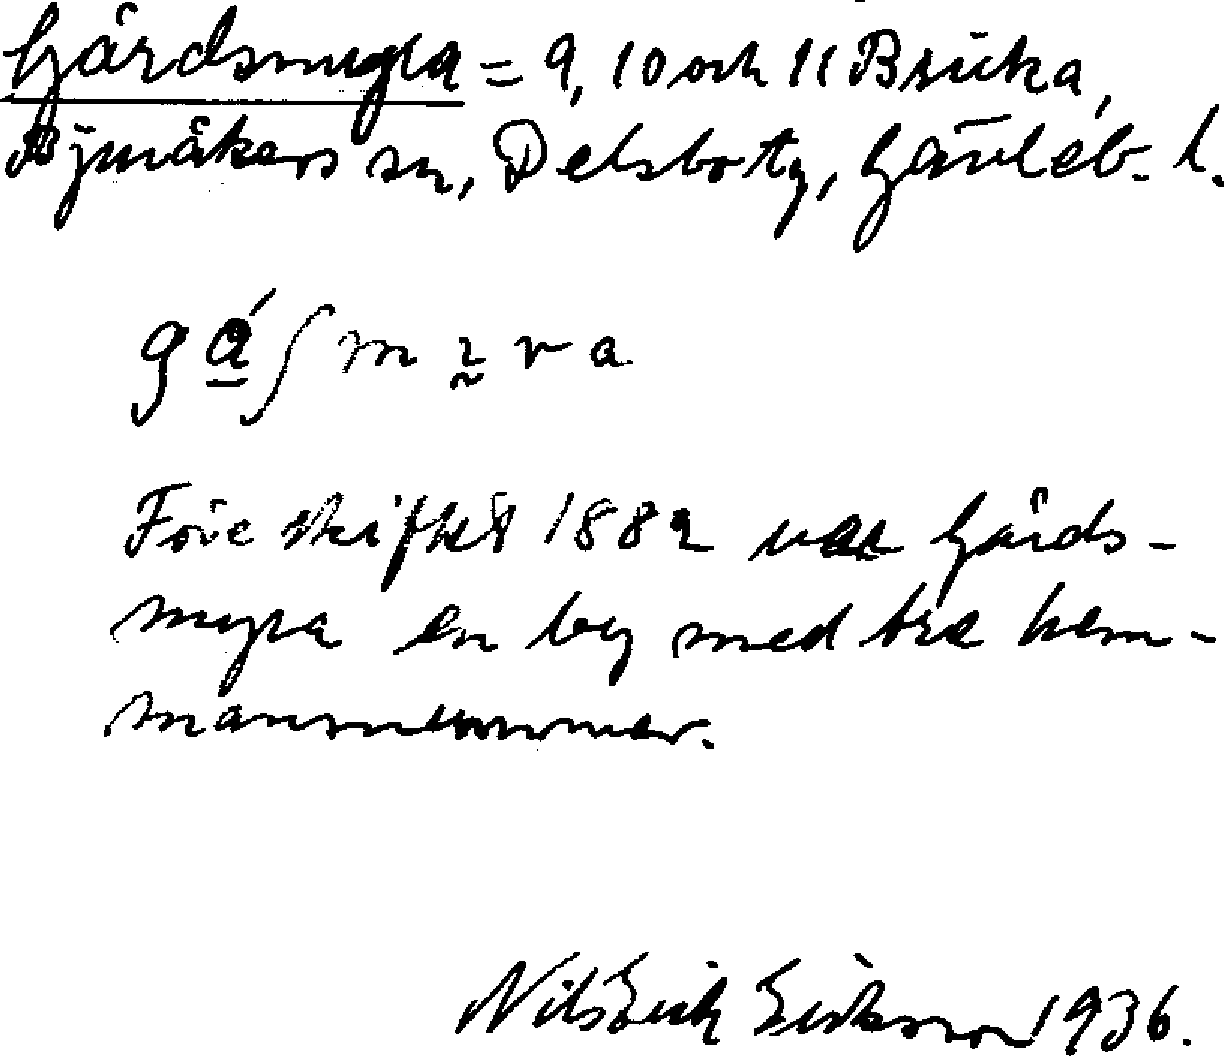 Gårdsmyra = 9, 10 och 11 Bricka,
Bjuråkers sn, Delsbo tg, Gävleb. l.
gá∫m
Före skiftet 1882 var Gårds-
myra en by med tre hem-
mansnummer.
Nils Erik Eriksson 1936.